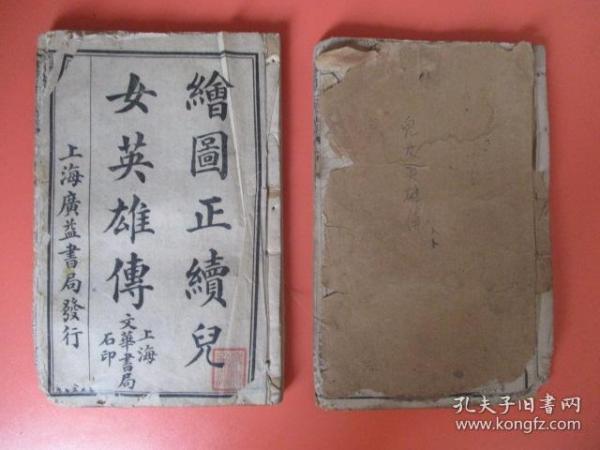 繪圖正續兒
女英雄傳
上海
文華書局
石印
上海廣益書局發行
兒女英雄傳
孔夫子旧书网
www.kongfz.com